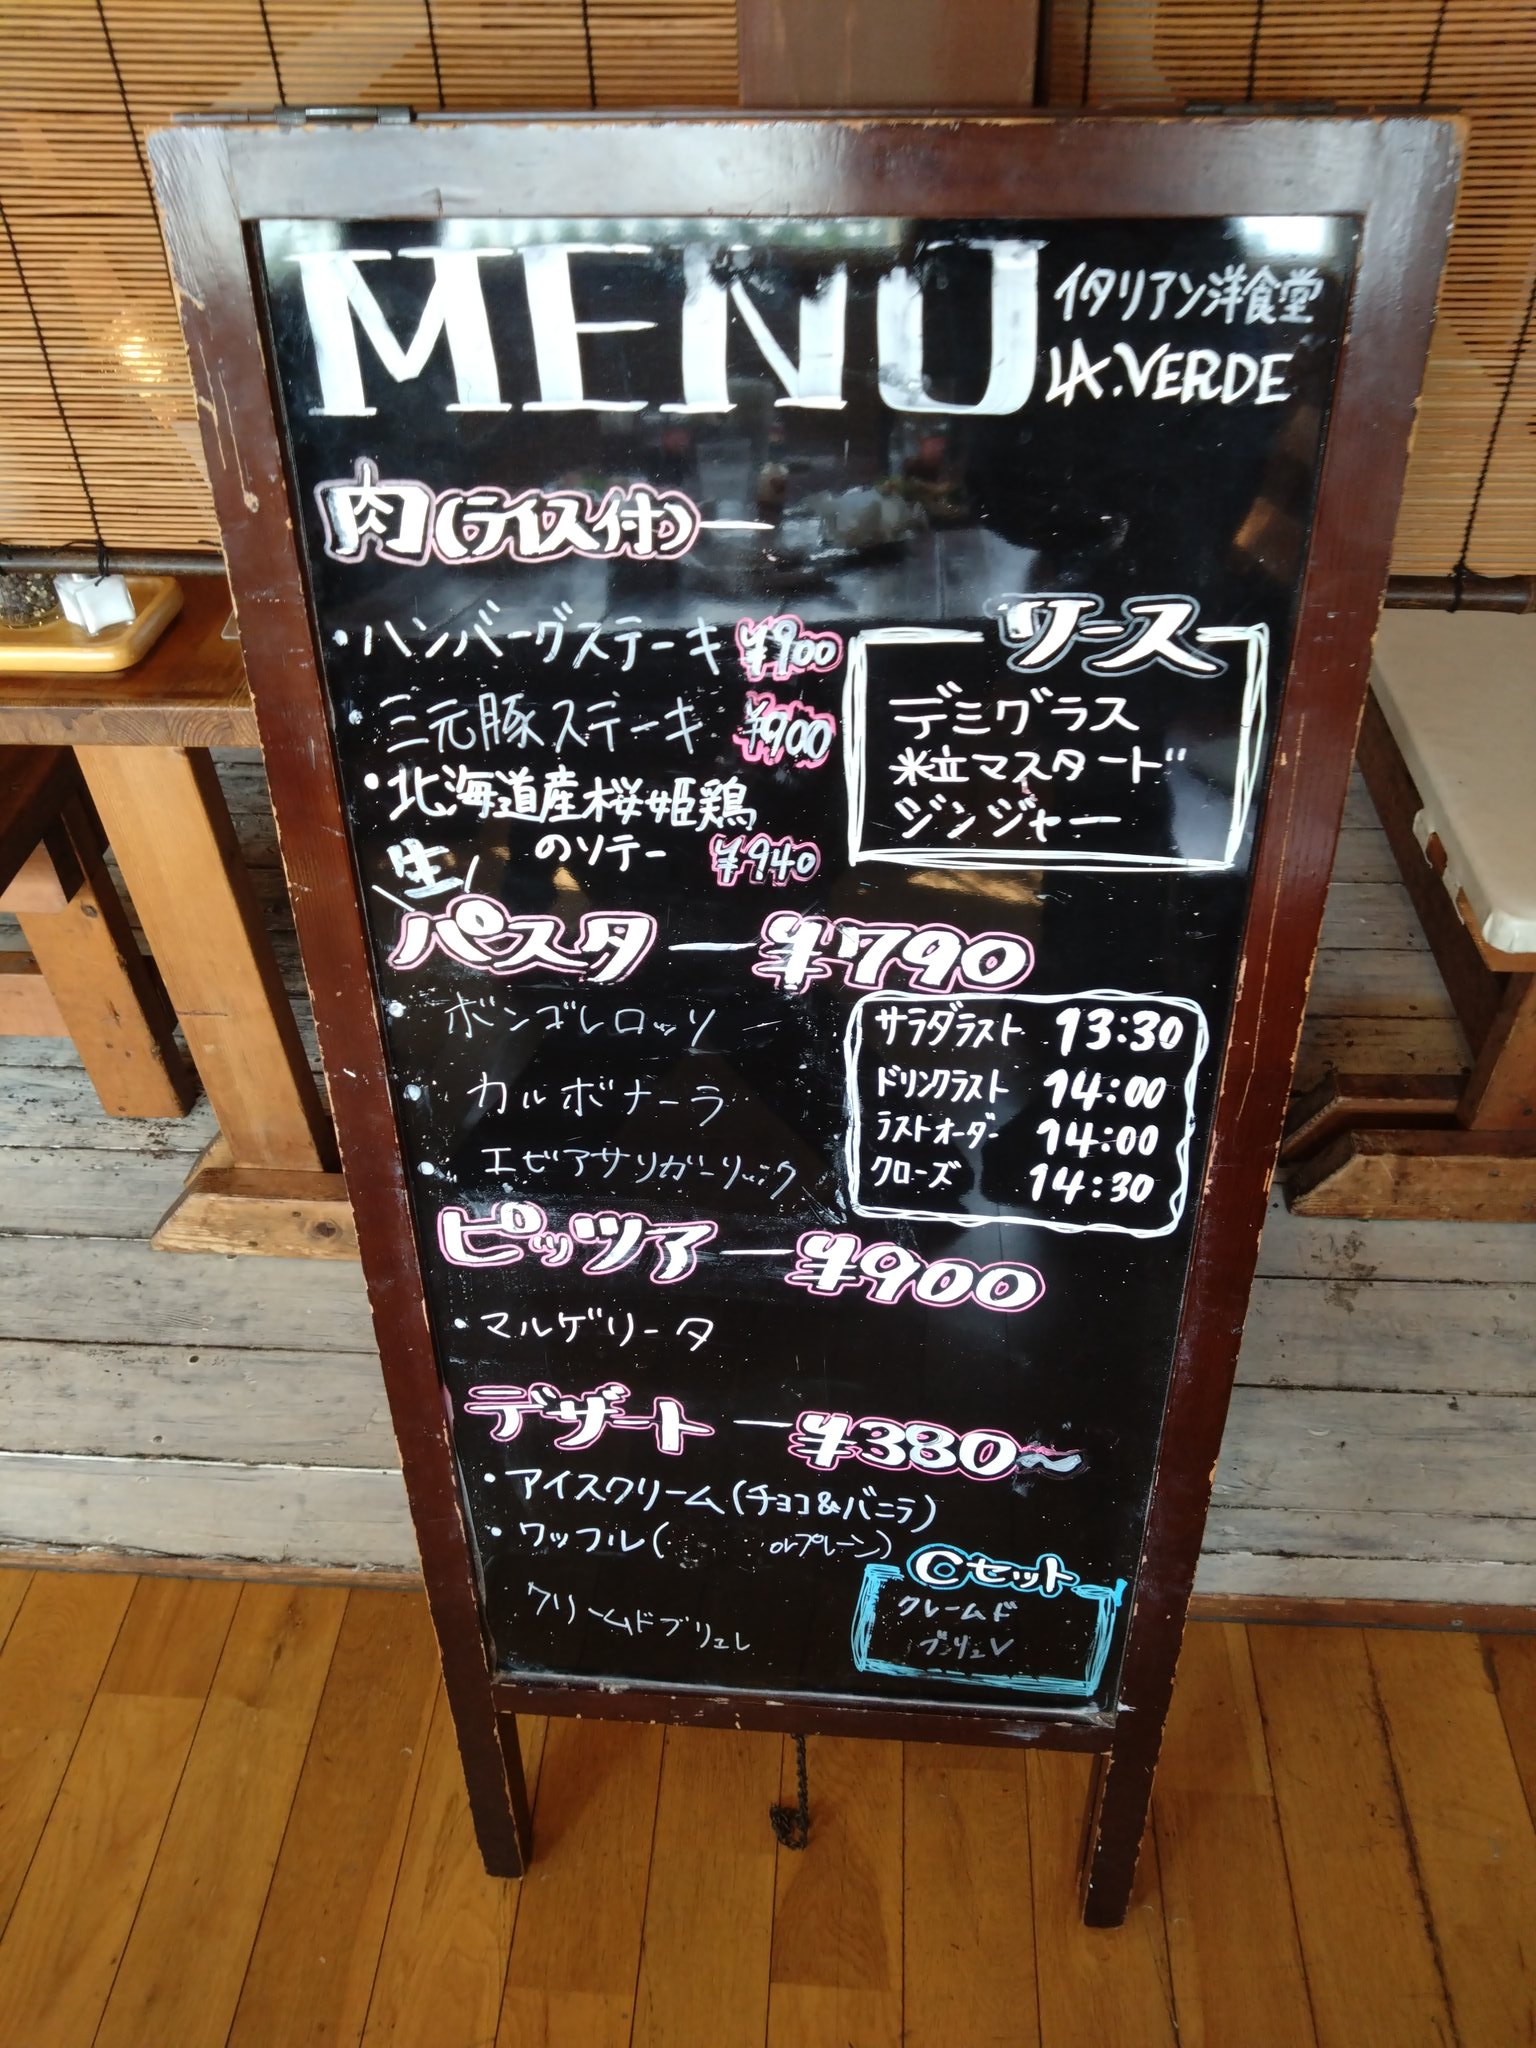 MENU
イタリアン洋食堂
LA.VERDE
肉(ライス付)
・ハンバーグステーキ ¥900
・三元豚ステーキ ¥900
・北海道産桜姫鶏
のソテー ¥940
ソース
デミグラス
粒マスタード
ジンジャー
生
パスタ ー ¥790
・ボンゴレロッソ
・カルボナーラ
・エビアサリガーリック
サラダラスト 13:30
ドリンクラスト 14:00
ラストオーダー 14:00
クローズ 14:30
ピッツァ ー ¥900
・マルゲリータ
デザート ー ¥380〜
・アイスクリーム(チョコ&バニラ)
・ワッフル( orプレーン)
クリームドブリュレ
Cセット
クレームド
ブリュレ